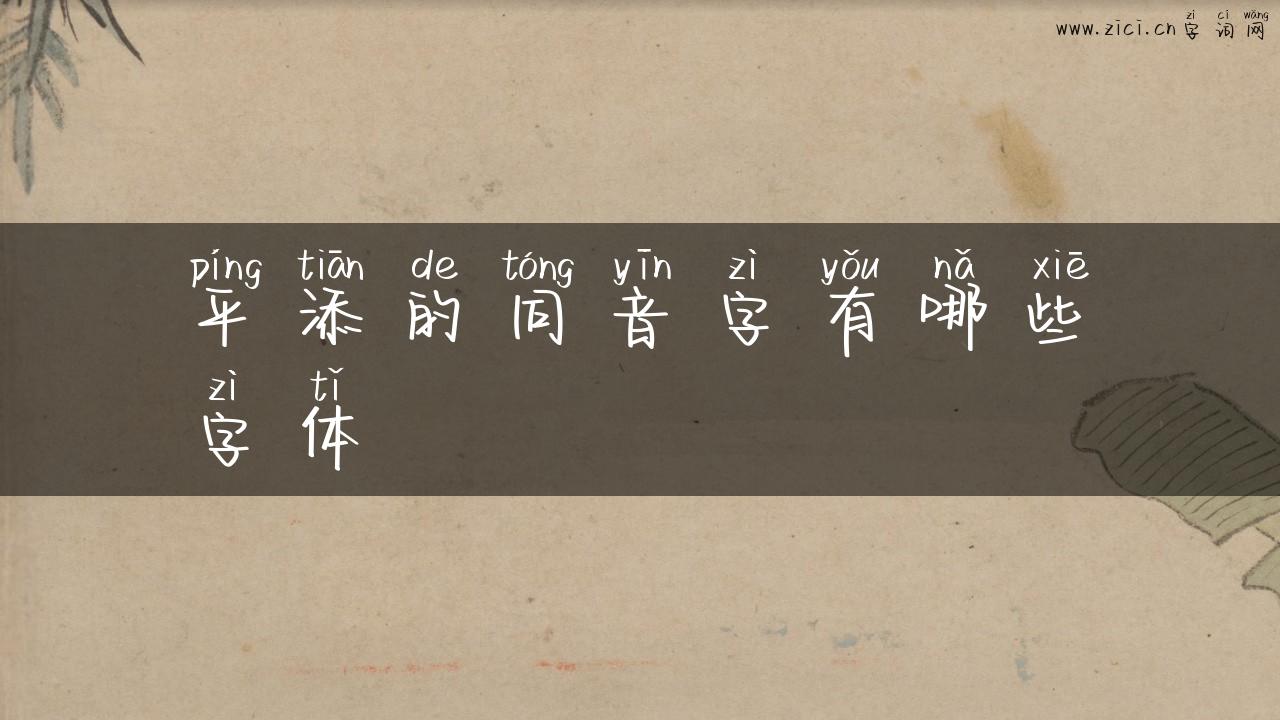 zì cí wǎng
www.zici.cn 字词网
píng tiān de tóng yīn zì yǒu nǎ xiē
平添的同音字有哪些
zì tǐ
字体